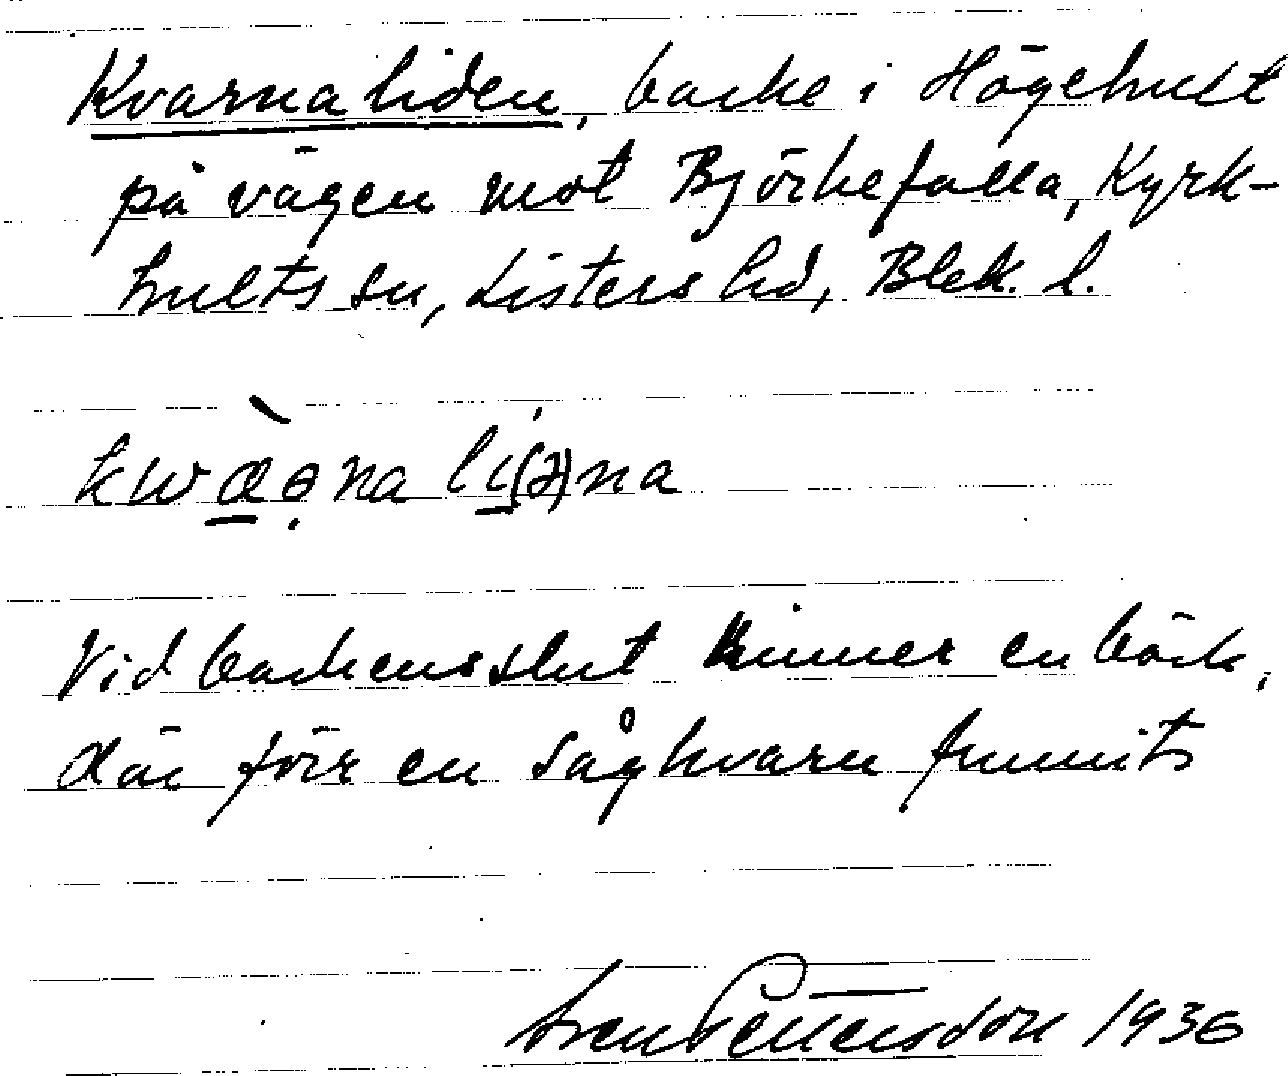 Kvarnaliden, backe i Högehult
på vägen mot Björkefalla, Kyrk-
hults sn, Listers hd, Blek. l.
kwæ̀ə̣na li(ə)na
Vid backens slut rinner en bäck,
där förr en sågkvarn funnits
Sven Pettersson 1936